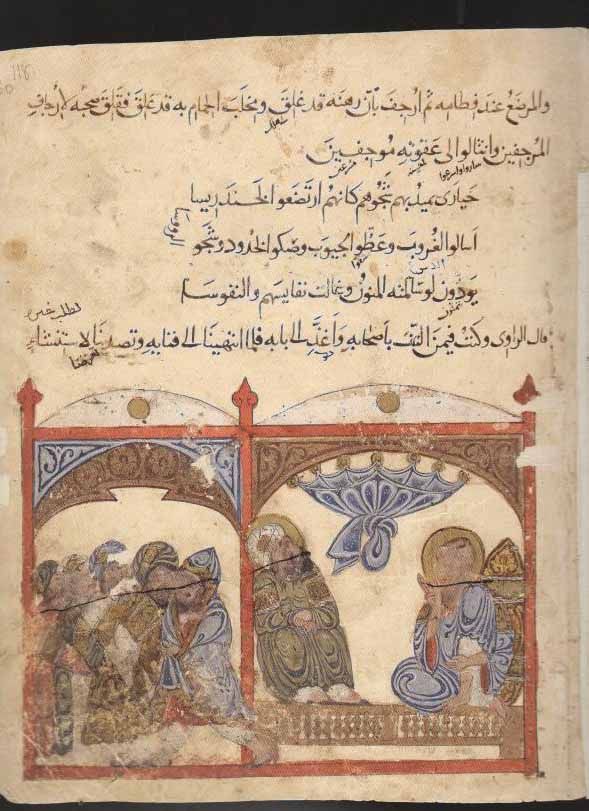 118
والمرضع عند فطامه ثم ارجف بأن رهنه قد غلق ومخلب الحمام به قد علق فقلق صحبه لإرجاف
المرجفين وانثالوا الى عقوته موجفين
ساروا واسرعوا
حيارى يميد بهم شجوهم كأنهم ارتضعوا الخندريسا
اسالوا الغروب وعطوا الجيوب وصكوا الخدود وشجوا الروؤسا
شقوا
يودون لو سالمته المنون وغالت نفايسهم والنفوسا
لطلب خبر
قال الراوى وكنت فيمن التف بأصحابه وأغذ الى بابه فلما انتهينا الى فنايه وتصدينا لاستنشاء
تعرضنا